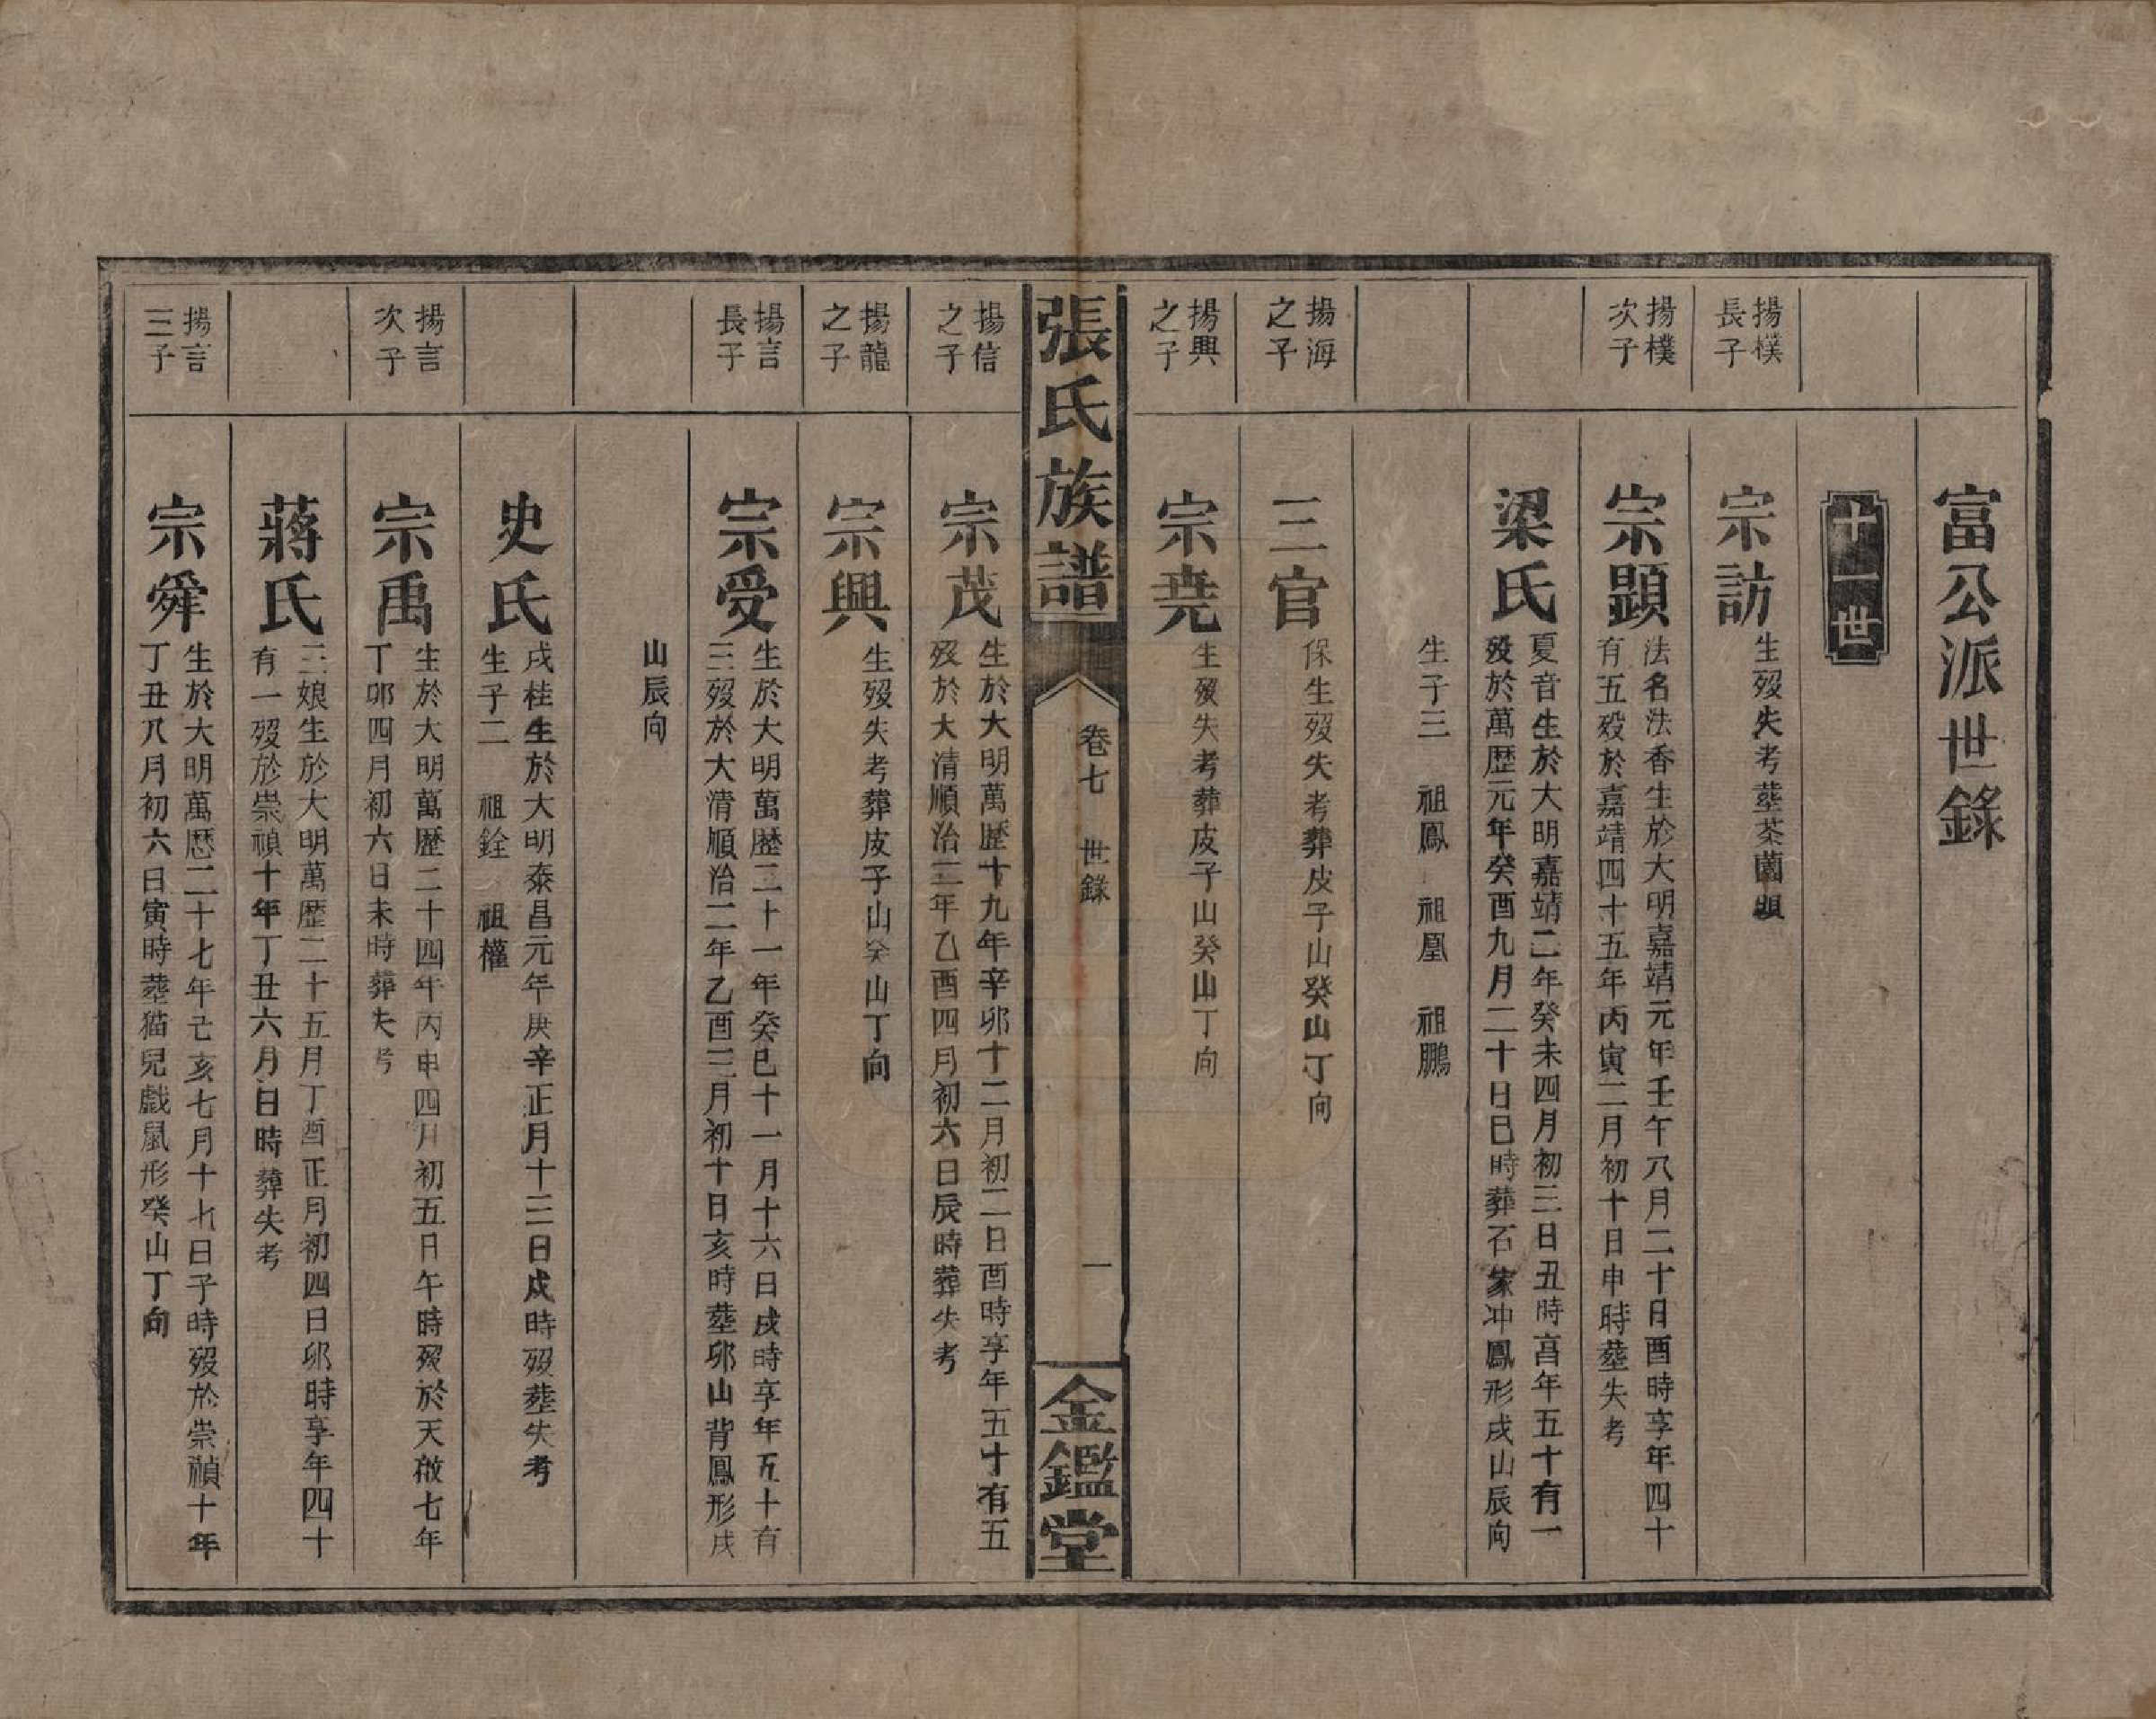 富公派世錄
十一世
揚樸長子
宗訪
生歿失考塟茶薗
揚樸次子
宗顕
法名法香生於大明嘉靖元年壬午八月二十日酉時享年四十
有五歿於嘉靖四十五年丙寅二月初十日申時塟失考
梁氏
夏音生於大明嘉靖二年癸未四月初三日丑時亯年五十有一
歿於萬歴元年癸酉九月二十日巳時葬石家冲鳳形戌山辰向
生子三 祖鳳 祖凰 祖鵬
揚海之子
三官
保生歿失考葬皮子山癸山丁向
揚興之子
宗尭
生歿失考葬皮子山癸山丁向
張氏族譜
卷七 世錄
一
金鑑堂
揚信之子
宗茂
生於大明萬歴十九年辛卯十二月初二日酉時享年五十有五
歿於大清順治二年乙酉四月初六日辰時葬失考
揚龍之子
宗興
生歿失考葬皮子山癸山丁向
揚言長子
宗受
生於大明萬歴二十一年癸巳十一月十六日戌時享年五十有
三歿於大清順治二年乙酉三月初十日亥時塟卯山背鳳形戌
山辰向
史氏
戌桂生於大明泰昌元年庚辛正月十三日戌時歿塟失考
生子二 祖銓 祖權
揚言次子
宗禹
生於大明萬歴二十四年丙申四月初五日午時歿於天啟七年
丁卯四月初六日未時葬失考
蔣氏
三娘生於大明萬歴二十五月丁酉正月初四日卯時享年四十
有一歿於崇禎十年丁丑六月 日時葬失考
揚言三子
宗舜
生於大明萬歴二十七年己亥七月十七日子時歿於崇禎十年
丁丑八月初六日寅時塟猫兒戲鼠形癸山丁向